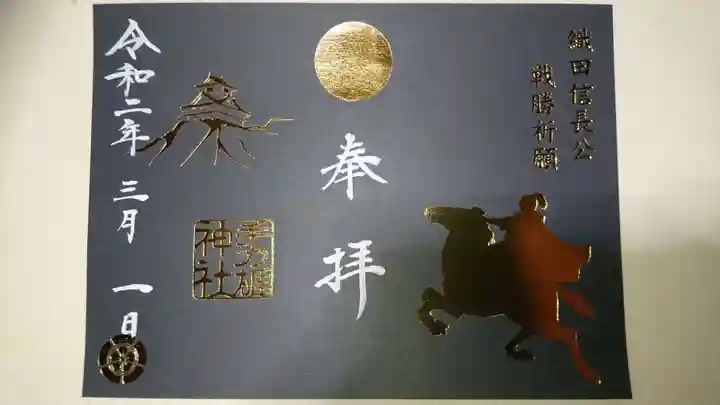 織田信長公
戦勝祈願
奉拝
手力雄
神社
令和二年三月一日